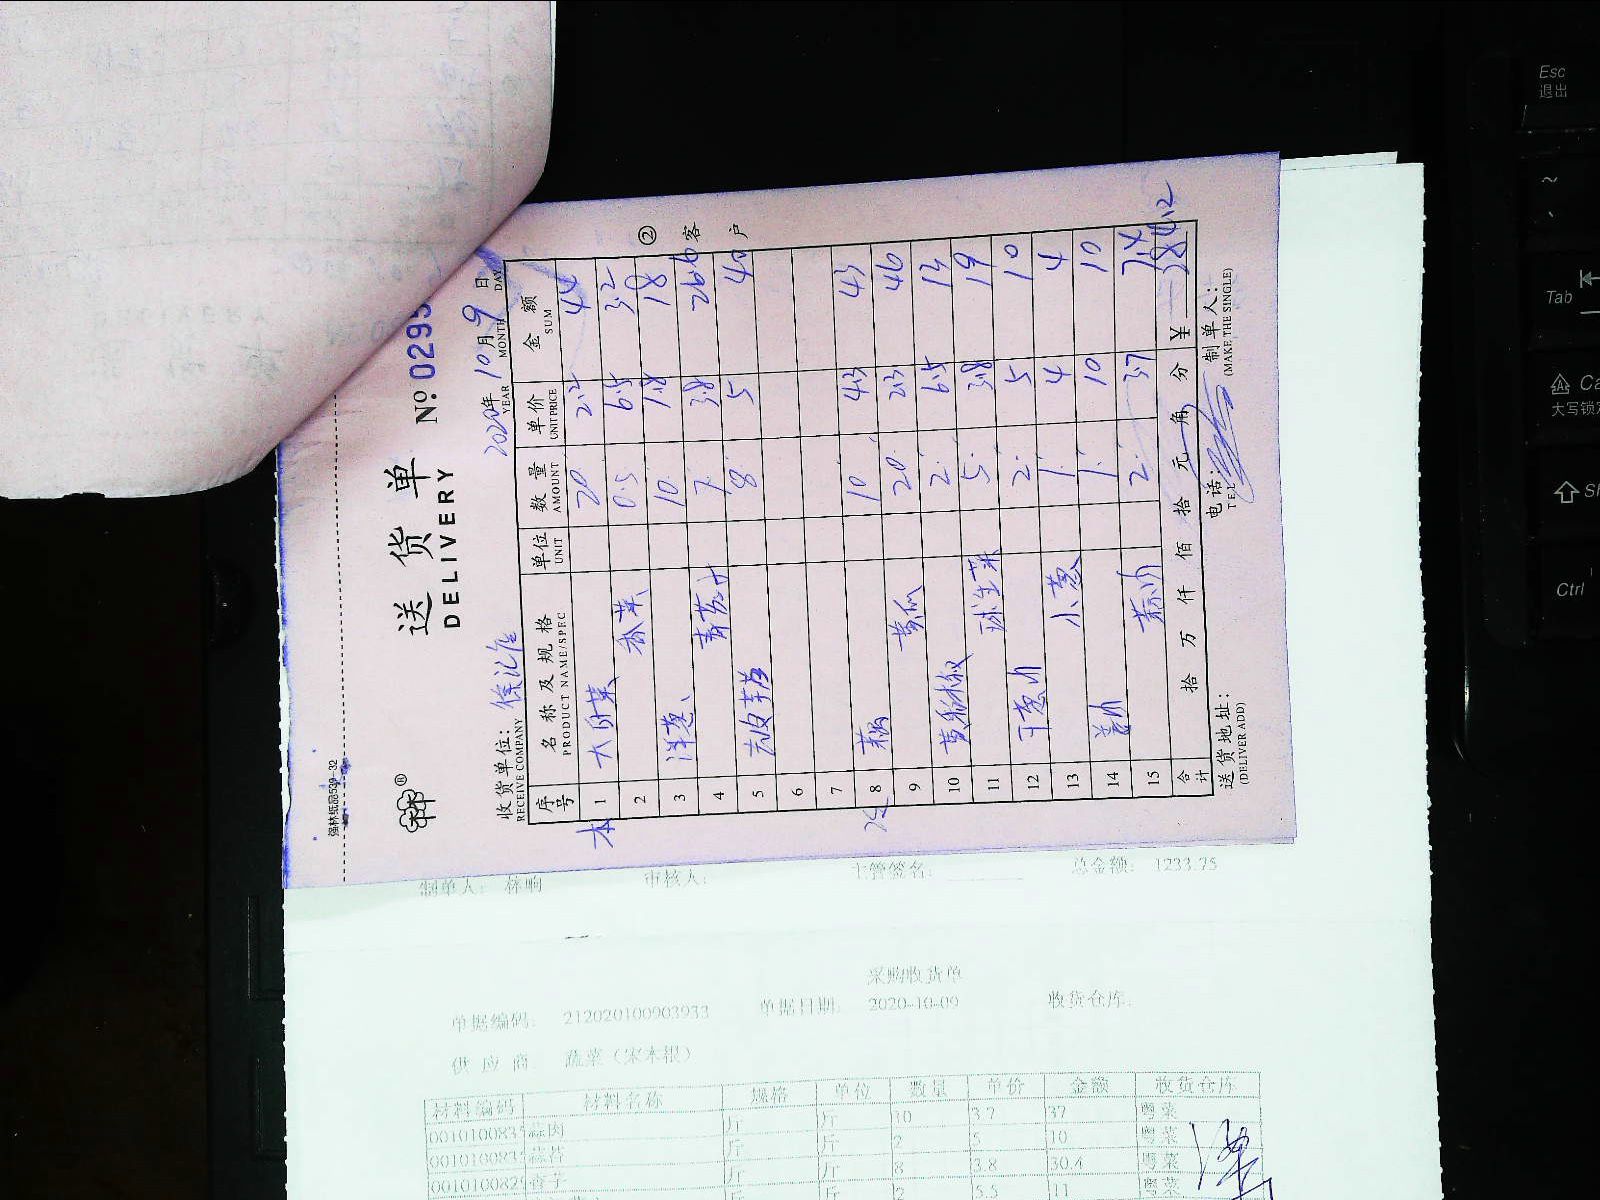 强林纸品539-32
送货单 Nº 0295
DELIVERY
收货单位： 2020年 10月 9日
RECEIVE COMPANY YEAR MONTH DAY
序号 名称及规格 单位 数量 单价 金额
PRODUCT NAME/SPEC UNIT AMOUNT UNIT PRICE SUM
1 20 2.2 44
2 香菜 0.5 6.5 3.2
3 洋葱 10 1.8 18
4 7 3.8 26.6
5 8 5 40
6
7
8 藕 10 4.3 43
9 黄瓜 20 2.3 46
10 2 6.5 13
11 球生菜 5 3.8 19
12 2 5 10
13 小葱 1 4 4
14 1 10 10
15 2 3.7 7.4
合计 拾 万 仟 佰 拾 元 角 分 ¥ 284.2
送货地址： 电话： 制单人：
(DELIVER ADD) TEL (MAKE THE SINGLE)
②客户
制单人： 徐响 审核人： 主管签名： 总金额： 1233.75
采购收货单
单据编码： 212020100903933 单据日期： 2020-10-09 收货仓库：
供应商 蔬菜（宋本银）
材料编码 材料名称 规格 单位 数量 单价 金额 收货仓库
001010083 蒜肉 斤 斤 10 3.7 37 粤菜
001010083 蒜苔 斤 斤 2 5 10 粤菜
001010082 杏子 斤 斤 8 3.8 30.4 粤菜
斤 斤 2 5.5 11 粤菜
Esc
退出
~
Tab
大写锁定
Ctrl